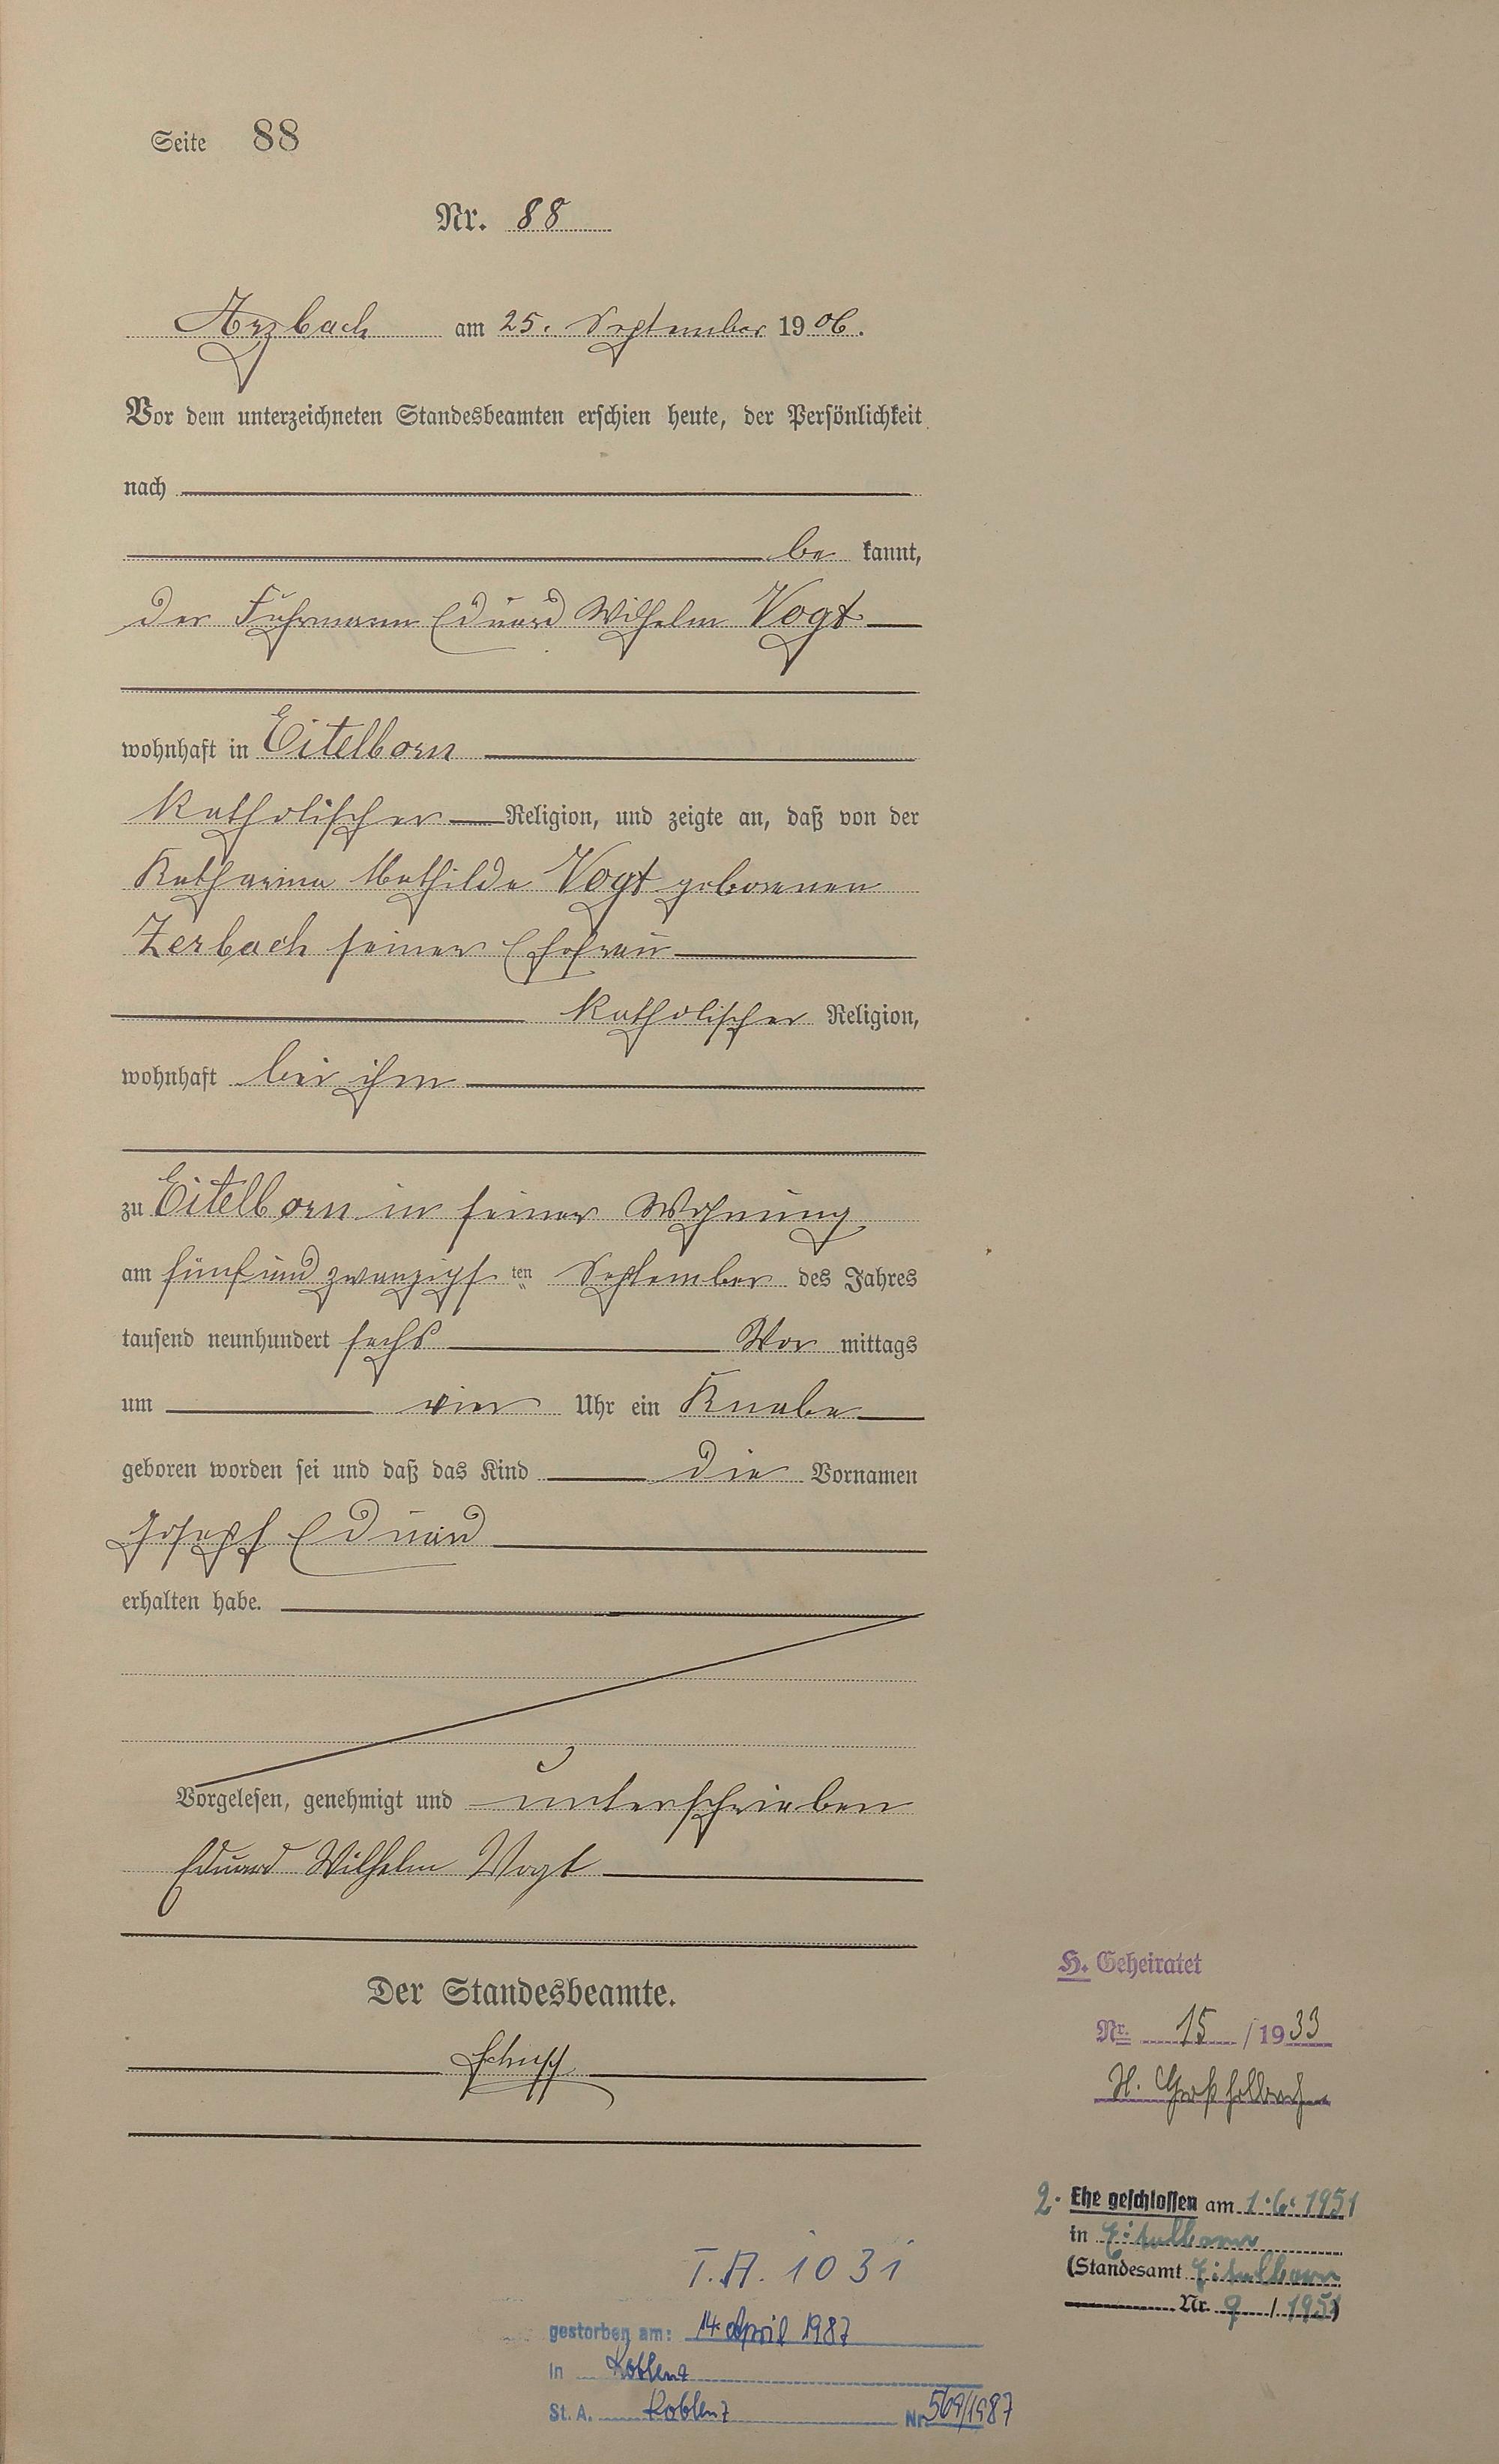 Seite 88
Nr. 88
Arzbach am 25. September 1906.
Vor dem unterzeichneten Standesbeamten erschien heute, der Persönlichkeit
nach
be kannt,
der Fuhrmann Eduard Wilhelm Vogt
wohnhaft in Eitelborn
katholischer Religion, und zeigte an, daß von der
Katharina Mathilde Vogt geborenen
Zerbach seiner Ehefrau
katholischer Religion,
wohnhaft bei ihm
zu Eitelborn in seiner Wohnung
am fünfundzwanzigsten September des Jahres
tausend neunhundert sechs Vor mittags
um vier Uhr ein Knabe
geboren worden sei und daß das Kind die Vornamen
Joseph Eduard
erhalten habe.
Vorgelesen, genehmigt und unterschrieben
Eduard Wilhelm Vogt
Der Standesbeamte.
H. Geheiratet
Nr. 15 / 1933
2. Ehe geschlossen am 1.6.1951
in Eitelborn
(Standesamt Eitelborn
Nr. 9 / 1951)
T.A. 1031
gestorben am: 14. April 1987
in Koblenz
St. A. Koblenz Nr. 569/1987